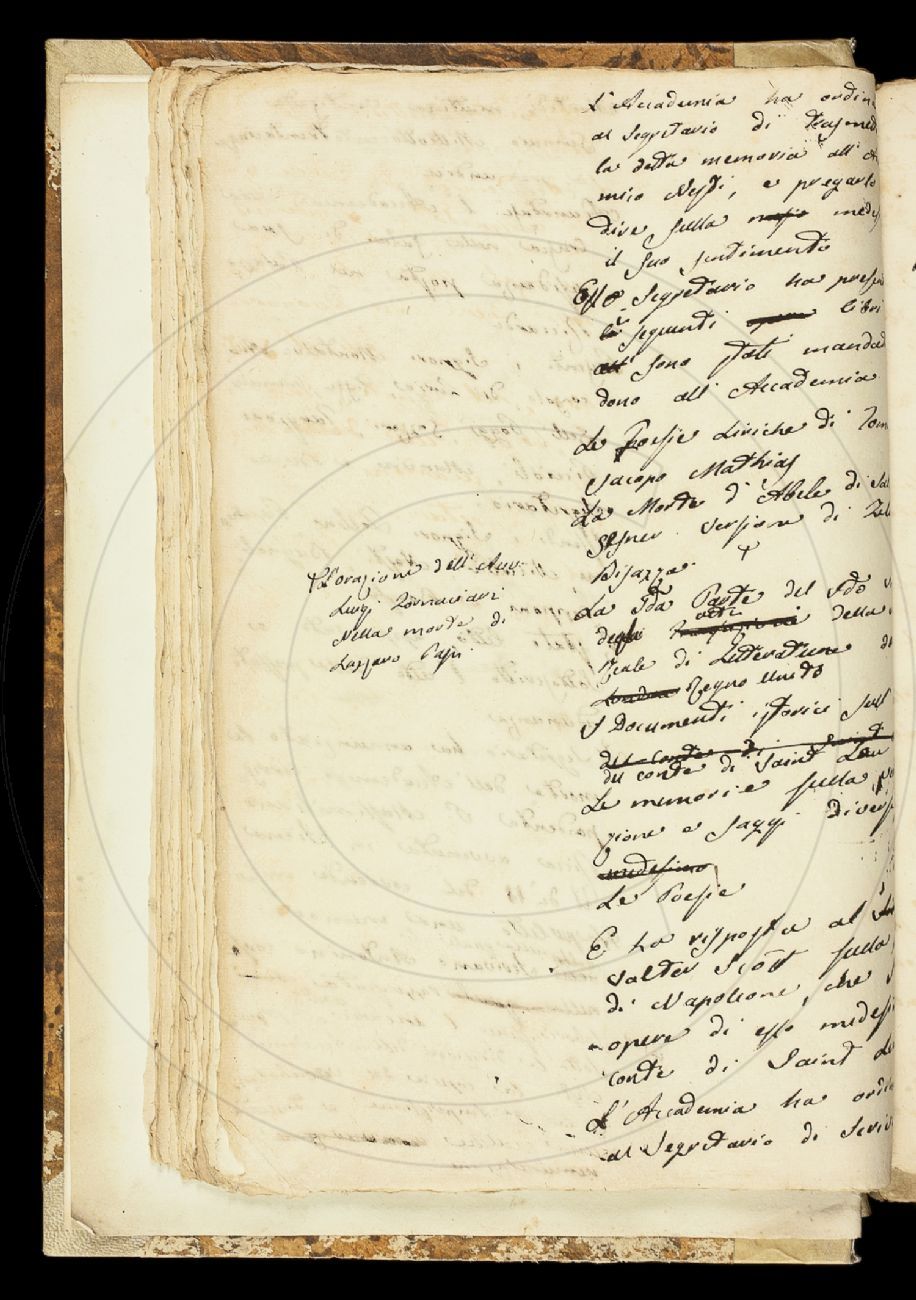 L'Accademia ha ordin
al Segretario di trasmed
la detta memoria all' A
mico Nesti, e pregarlo
dire sulla medes
il suo sentimento
Esso Segretario ha presen
li seguenti libri
sono stati mandad
dono all' Accademia
Le Poesie Liriche di Tom
Jacopo Mathias
La Morte d' Abele di Sal
Gesner versione di
Bisazza.
La 2da Parte del 2do v
degli atti della
Reale di Letteratura de
Regno Unito
I Documenti istorici sull
del conte di Saint Leu
Le memorie sulla v
zione e Saggi diversi
medesimo
Le Poesie
E la risposta al
Valter Scott sulla
di Napoleone, che
opere di esso medesi
conte di Saint Le
L'Accademia ha ordi
al Segretario di Scriv
L'orazione dell' Avv.
Luigi Fornaciari
Nella morte di
Lazzaro Papi.